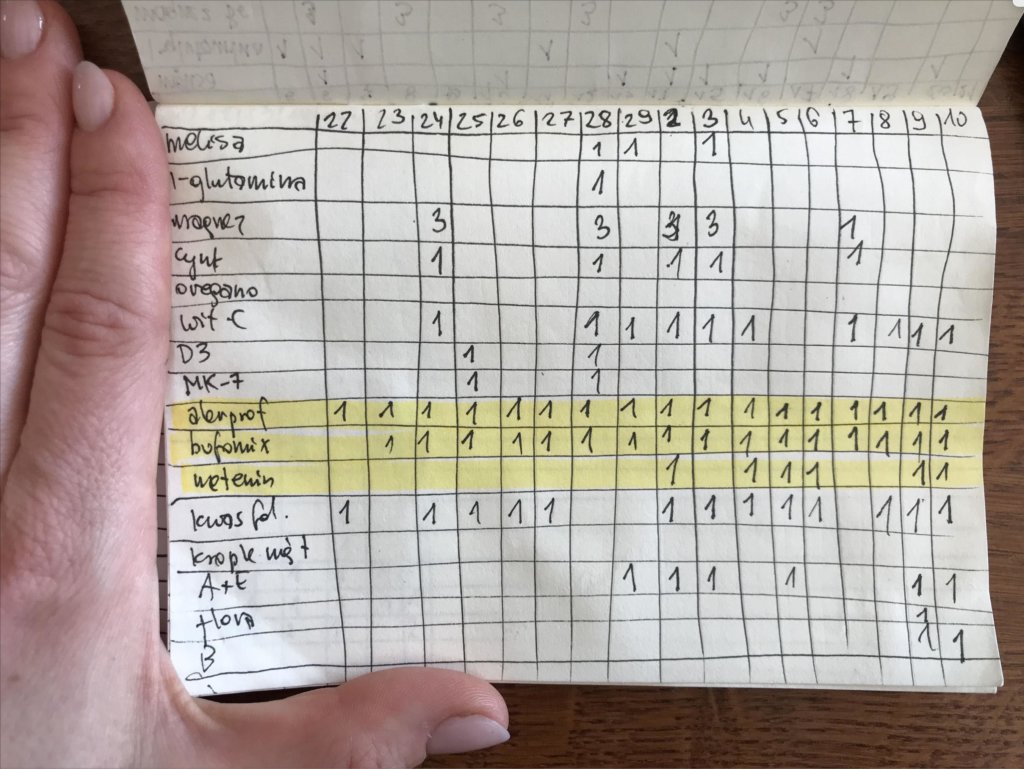 22 23 24 25 26 27 28 29 2 3 4 5 6 7 8 9 10
melisa 1 1 1
l-glutamina 1
magnez 3 3 3 3 1
cynk 1 1 1 1 1
oregano
wit-C 1 1 1 1 1 1 1 1 1 1
D3 1 1
MK-7 1 1
alerprof 1 1 1 1 1 1 1 1 1 1 1 1 1 1 1 1 1
bufomix 1 1 1 1 1 1 1 1 1 1 1 1 1 1 1 1
1 1 1 1 1 1
kwas fol. 1 1 1 1 1 1 1 1 1 1 1 1 1
krople
A+E 1 1 1 1 1 1
flora 1
B 1 1